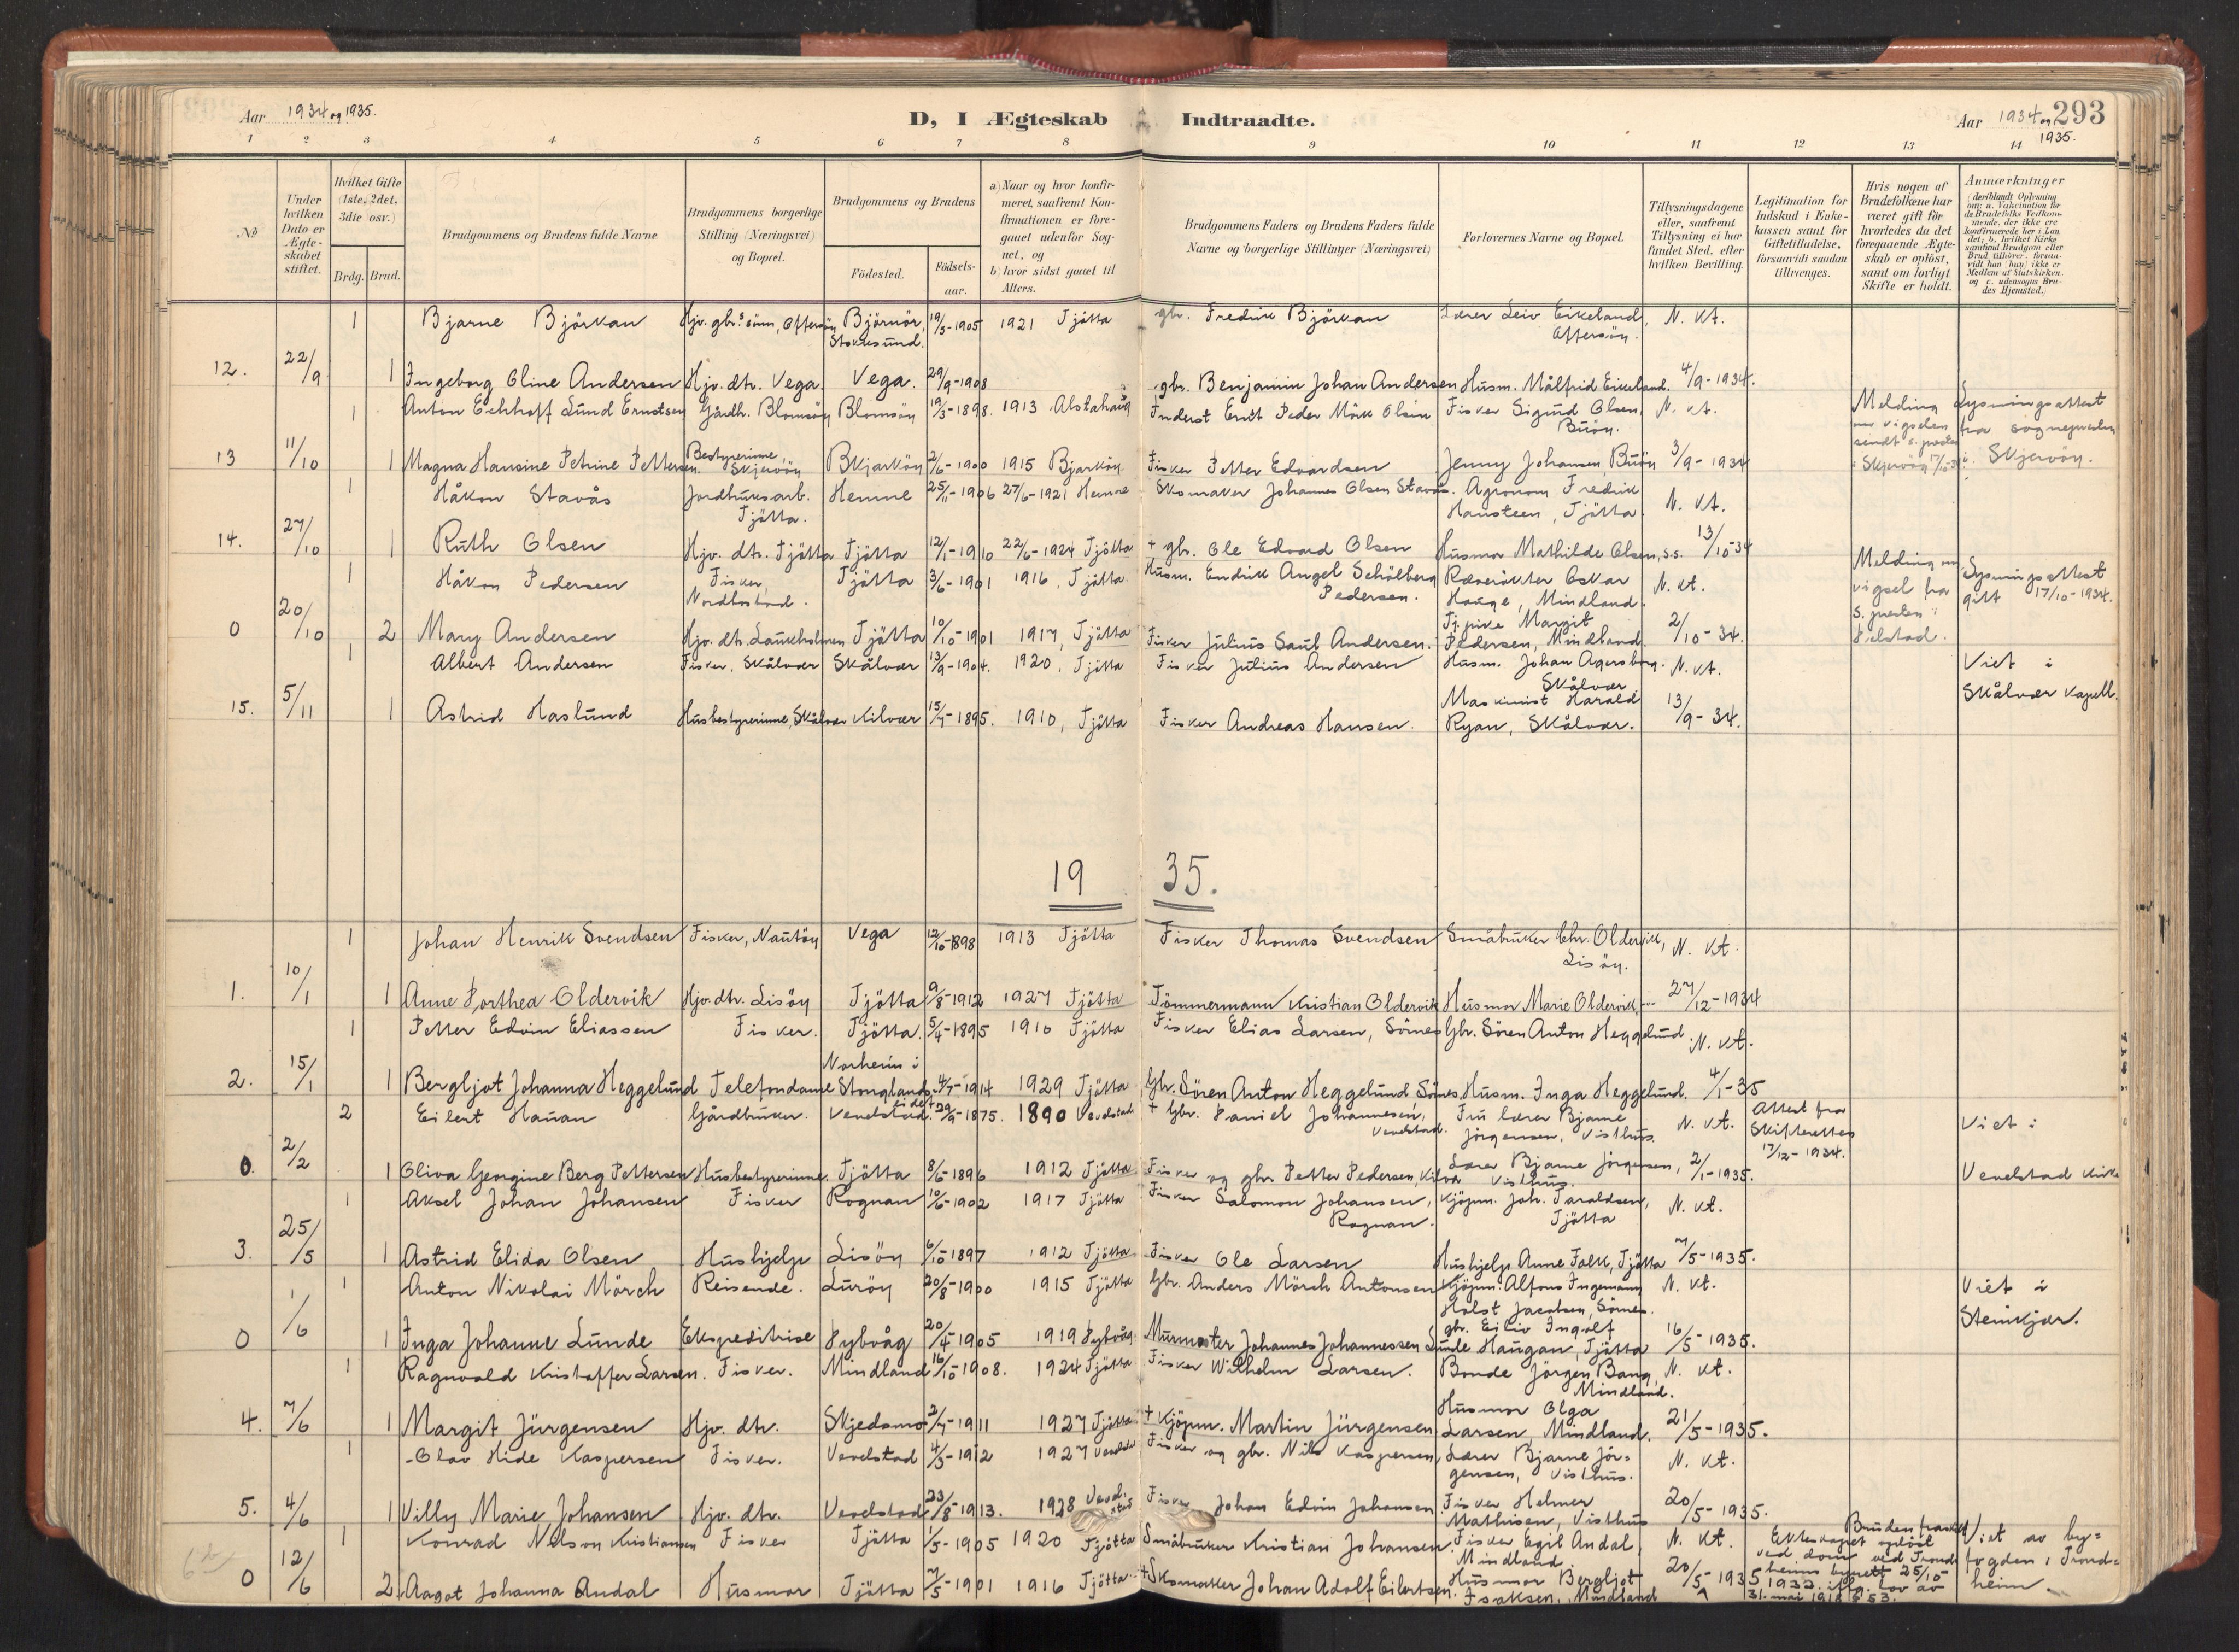 Aar 1934 og 1935.
D, I Ægteskab Indtraadte.
Aar 1934 og 1935.
293
1 2 3 4 5 6 7 8 9 10 11 12 13 14
№
Under hvilken Dato er Ægteskabet stiftet.
Hvilket Gifte (1ste, 2det, 3die osv.)
Brdg. Brud.
Brudgommens og Brudens fulde Navne
Brudgommens borgerlige Stilling (Næringsvei) og Bopæl.
Brudgommens og Brudens
Fødested.
Fødselsaar.
a) Naar og hvor konfirmeret, saafremt Konfirmationen er foregaaet udenfor Sognet, og
b) hvor sidst gaaet til Alters.
Brudgommens Faders og Brudens Faders fulde Navne og borgerlige Stillinger (Næringsvei)
Forlovernes Navne og Bopæl.
Tillysningsdagene eller, saafremt Tillysning ei har fundet Sted, efter hvilken Bevilling.
Legitimation for Indskud i Enkekassen samt for Giftetilladelse, forsaavidt saadan tiltrænges.
Hvis nogen af Brudefolkene har været gift før hvorledes da det foregaaende Ægteskab er opløst, samt om lovligt Skifte er holdt.
Anmærkninger (deriblandt Oplysning om: a. Vakcination for de Brudefolks Vedkommende, der ikke ere konfirmerede her i Landet; b. hvilket Kirkesamfund Brudgom eller Brud tilhører, forsaavidt han (hun) ikke er Medlem af Statskirken, og c. udensogns Brudes Hjemsted.)
1 Bjarne Björkan Hjv. gbr.s sönn, Offersöy Björnör, Stoksund. 19/3-1905 1921 Tjötta gbr. Fredrik Björkan Lærer Leiv Eikeland, Offersöy. N. kt.
12. 22/9 1 Ingeborg Oline Andersen Hjv. dtr. Vega. Vega. 29/9-1908 gbr. Benjamin Johan Andersen Husm. Målfrid Eikeland. 4/9-1934.
1 Anton Eckhoff Lund Ernstsen Gårdb. Blomsöy Blomsöy 19/3-1898. 1913 Alstahaug Inderst Ernst Peder Mörk Olsen Fisker Sigurd Olsen, Buöy. N. kt. Melding om vigselen sendt s. presten i Skjervöy 17/10-34 Lysningsattest fra sognepresten i Skjervöy.
13 11/10 1 Magna Hansine Petrine Pettersen. Bestyrerinne, Skjervöy Bkjarköy 2/6-1900 1915 Bjarköy. Fisker Petter Edvardsen Jenny Johansen, Buöy 3/9-1934
1 Håkon Stavås Jordbruksarb. Tjötta. Hemne 25/11-1906 27/6-1921 Hemne Skomaker Johannes Olsen Stavås. Agronom Fredrik Hansteen, Tjötta. N. kt.
14. 27/10 1 Ruth Olsen Hjv. dtr. Tjötta Tjötta 12/1-1910 22/6-1924 Tjötta + gbr. Ole Edvard Olsen Husmor Mathilde Olsen, s.s. 13/10-34
1 Håkon Pedersen Fisker, Nordbostad. Tjötta 3/6-1901 1916, Tjötta. Husm. Endrik Angel Schölberg Pedersen. Ræverökter Oskar Hauge, Mindland. N. kt. Melding om vigsel fra s. presten i Lysningsattest gitt 17/10-1934.
0 20/10 2 Mary Andersen Hjv. dtr. Laukholmen Tjötta 10/10-1901 1917, Tjötta Fisker Julius Saul Andersen. Tj.pike Margit Pedersen, Mindland. 2/10-34.
1 Albert Andersen Fisker, Skålvær Skålvær 13/9-1904. 1920, Tjötta Fisker Julius Andersen Husm. Johan Agersborg. Skålvær N. kt. Viet i Skålvær kapell.
15. 5/11 1 Astrid Haslund Husbestyrerinne, Skålvær Kilvær 15/7-1895. 1910, Tjötta Fisker Andreas Hansen. Maskinist Harald Ryan, Skålvær. 13/9-34.
19 35.
1 Johan Henrik Svendsen Fisker, Nautöy Vega 12/10-1898 1913 Tjötta Fisker Thomas Svendsen Småbruker Chr. Oldervik, Lisöy. N. kt.
1. 10/1 1 Anne Dorthea Oldervik Hjv. dtr. Lisöy Tjötta 9/8-1912 1927 Tjötta Tömmermann Kristian Oldervik Husmor Marie Oldervik 27/12-1934
1 Petter Edvin Eliassen Fisker. Tjötta. 5/4-1895 1910 Tjötta Fisker Elias Larsen, Sömes Gbr. Sören Anton Heggelund. N. kt.
2. 15/1 1 Bergljot Johanna Heggelund Telefondame Norheim i Stonglandseidet 4/7-1914 1929 Tjötta Gbr. Sören Anton Heggelund Sömes Husm. Inga Heggelund. 4/1-35
2 Eilert Hauan Gårdbruker. Vevelstad. 29/9-1875. 1890 Vevelstad + Gbr. Daniel Johannesen, Vevelstad. Fru lærer Bjarne Jörgensen, Visthus. N. kt. Attest fra Skifteretten 17/12-1934. Viet i
0. 2/2 1 Oliva Georgine Berg Pettersen Husbestyrerinne. Tjötta 8/6-1896 1912 Tjötta Fisker og gbr. Petter Pedersen, Kilvær Lærer Bjarne Jörgensen, Visthus. 2/1-1935. Vevelstad kirke
1 Aksel Johan Johansen Fisker Rognan 10/6-1902 1917 Tjötta Fisker Salomon Johansen, Rognan. Kjöpm. Joh. Taraldsen, Tjötta N. kt.
3. 25/5 1 Astrid Elida Olsen Hushjelp Lisöy 6/10-1897 1912 Tjötta Fisker Ole Larsen Hushjelp Anne Falk, Tjötta 7/5-1935.
1 Anton Nikolai Mörch Reisende. Luröy 20/8-1900 1915 Tjötta Gbr. Anders Mörch Antonsen Kjöpm. Alfons Ingemann Holst Jacobsen, Sömes. N. kt. Viet i
0 1/6 1 Inga Johanne Lunde Ekspeditrise Dybvåg 20/4-1905 1919 Dybvåg Murmester Johannes Johannessen Lunde gbr. Eiliv Ingolf Haugan, Tjötta 16/5-1935. Steinkjær.
1 Ragnvald Kristoffer Larsen. Fisker. Mindland 16/10-1908. 1924 Tjötta Fisker Wilhelm Larsen. Bonde Jörgen Bang, Mindland. N. kt.
4. 7/6 1 Margit Jürgensen Hjv. dtr. Skjedsmo 2/7-1911 1927 Tjötta + Kjöpm. Martin Jürgensen Husmor Olga Larsen, Mindland. 21/5-1935.
1 Olav Hide Kaspersen Fisker. Vevelstad 4/3-1912 1927 Fisker og gbr. Nils Kaspersen, Lærer Bjarne Jörgensen, Visthus. N. kt.
5. 4/6 1 Villy Marie Johansen Hjv. dtr. Vevelstad 23/8-1913. 1928 Vevelstad Fisker Johan Edvin Johansen Fisker Helmer Mathisen, Visthus 20/5-1935.
1 Konrad Nelson Kristiansen Fisker Tjötta 1/5-1905 1920 Tjötta Småbruker Kristian Johansen. Fisker Egil Andal, Mindland. N. kt. Bruden fraskilt Ekteskapet oplöst ved dom ved Trondheims byrett 25/10-1932 iflg. lov av 31. mai 1918 § 53. Viet av byfogden i Trondheim.
0 12/6 2 Aagot Johanna Andal Husmor Tjötta 7/5-1901 1916 Tjötta + Skomaker Johan Adolf Eilertsen. Husmor Bergljot Isaksen, Mindland 20/5-1935